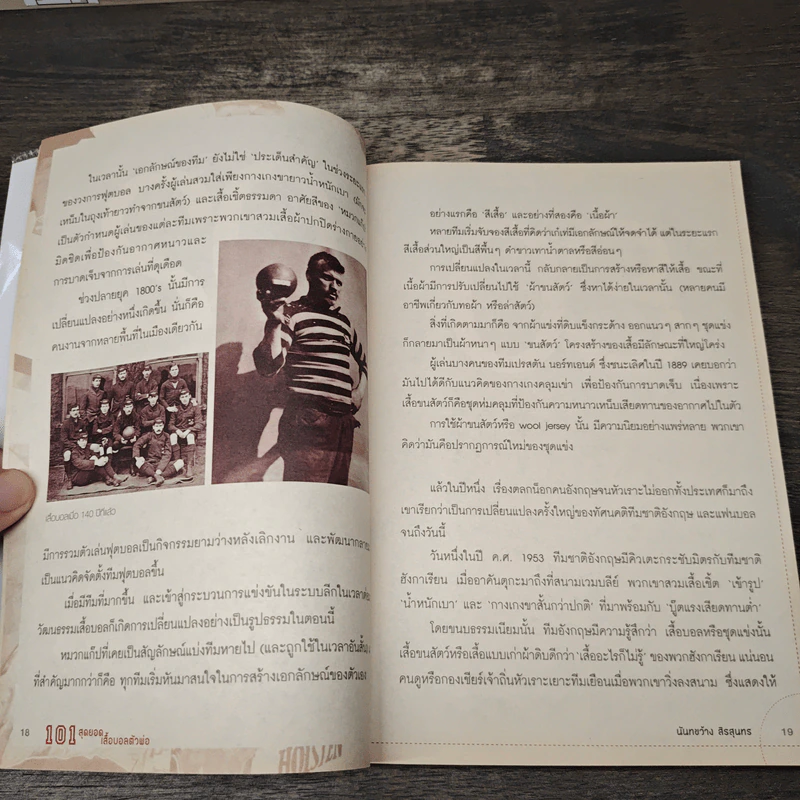 ในเวลานั้น ‘เอกลักษณ์ของทีม’ ยังไม่ใช่ ‘ประเด็นสำคัญ’ ในช่วงระยะแรก
ของวงการฟุตบอล บางครั้งผู้เล่นสวมใส่เพียงกางเกงขายาวน้ำหนักเบา
เหน็บในถุงเท้ายาวทำจากขนสัตว์) และเสื้อเชิ้ตธรรมดา อาศัยสีของ ‘หมวกแก๊ป’
เป็นตัวกำหนดผู้เล่นของแต่ละทีมเพราะพวกเขาสวมเสื้อผ้าปกปิดร่างกายอย่าง
มิดชิดเพื่อป้องกันอากาศหนาวและ
การบาดเจ็บจากการเล่นที่ดุเดือด
ช่วงปลายยุค 1800’s นั้นมีการ
เปลี่ยนแปลงอย่างหนึ่งเกิดขึ้น นั่นก็คือ
คนงานจากหลายพื้นที่ในเมืองเดียวกัน
เสื้อบอลเมื่อ 140 ปีที่แล้ว
มีการรวมตัวเล่นฟุตบอลเป็นกิจกรรมยามว่างหลังเลิกงาน และพัฒนากลาย
เป็นแนวคิดจัดตั้งทีมฟุตบอลขึ้น
เมื่อมีทีมที่มากขึ้น และเข้าสู่กระบวนการแข่งขันในระบบลีกในเวลาต่อ
วัฒนธรรมเสื้อบอลก็เกิดการเปลี่ยนแปลงอย่างเป็นรูปธรรมในตอนนี้
หมวกแก๊ปที่เคยเป็นสัญลักษณ์แบ่งทีมหายไป (และถูกใช้ในเวลาอันสั้น)
ที่สำคัญมากกว่าก็คือ ทุกทีมเริ่มหันมาสนใจในการสร้างเอกลักษณ์ของตัวเอง
18 101 สุดยอด
เสื้อบอลตัวพ่อ
HOLSTEN
อย่างแรกคือ ‘สีเสื้อ’ และอย่างที่สองคือ ‘เนื้อผ้า’
หลายทีมเริ่มจับจองสีเสื้อที่คิดว่าเก๋เท่มีเอกลักษณ์ให้จดจำได้ แต่ในระยะแรก
สีเสื้อส่วนใหญ่เป็นสีพื้นๆ ดำขาวเทาน้ำตาลหรือสีอ่อนๆ
การเปลี่ยนแปลงในเวลานี้ กลับกลายเป็นการสร้างหรือหาสีให้เสื้อ ขณะที่
เนื้อผ้ามีการปรับเปลี่ยนไปใช้ ‘ผ้าขนสัตว์’ ซึ่งหาได้ง่ายในเวลานั้น (หลายคนมี
อาชีพเกี่ยวกับทอผ้า หรือล่าสัตว์)
สิ่งที่เกิดตามมาก็คือ จากผ้าแข่งที่ดิบแข็งกระด้าง ออกแนวๆ สากๆ ชุดแข่ง
ก็กลายมาเป็นผ้าหนาๆ แบบ ‘ขนสัตว์’ โครงสร้างของเสื้อมีลักษณะที่ใหญ่โคร่ง
ผู้เล่นบางคนของทีมเปรสตัน นอร์ทเอนด์ ซึ่งชนะเลิศในปี 1889 เคยบอกว่า
มันไปได้ดีกับแนวคิดของกางเกงคลุมเข่า เพื่อป้องกันการบาดเจ็บ เนื่องเพราะ
เสื้อขนสัตว์ก็คือชุดห่มคลุมที่ป้องกันความหนาวเหน็บเสียดทานของอากาศไปในตัว
การใช้ผ้าขนสัตว์หรือ wool jersey นั้น มีความนิยมอย่างแพร่หลาย พวกเขา
คิดว่ามันคือปรากฏการณ์ใหม่ของชุดแข่ง
แล้วในปีหนึ่ง เรื่องตลกน็อกคนอังกฤษจนหัวเราะไม่ออกทั้งประเทศก็มาถึง
เขาเรียกว่าเป็นการเปลี่ยนแปลงครั้งใหญ่ของทัศนคติทีมชาติอังกฤษ และแฟนบอล
จนถึงวันนี้
วันหนึ่งในปี ค.ศ. 1953 ทีมชาติอังกฤษมีคิวเตะกระชับมิตรกับทีมชาติ
ฮังกาเรียน เมื่ออาคันตุกะมาถึงที่สนามเวมบลีย์ พวกเขาสวมเสื้อเชิ้ต ‘เข้ารูป’
‘น้ำหนักเบา’ และ ‘กางเกงขาสั้นกว่าปกติ’ ที่มาพร้อมกับ ‘บู๊ตแรงเสียดทานต่ำ’
โดยขนบธรรมเนียมนั้น ทีมอังกฤษมีความรู้สึกว่า เสื้อบอลหรือชุดแข่งนั้น
เสื้อขนสัตว์หรือเสื้อแบบเก่าผ้าดิบดีกว่า ‘เสื้ออะไรก็ไม่รู้’ ของพวกฮังกาเรียน แน่นอน
คนดูหรือกองเชียร์เจ้าถิ่นหัวเราะเยาะทีมเยือนเมื่อพวกเขาวิ่งลงสนาม ซึ่งแสดงให้
นันทขว้าง สิรสุนทร 19